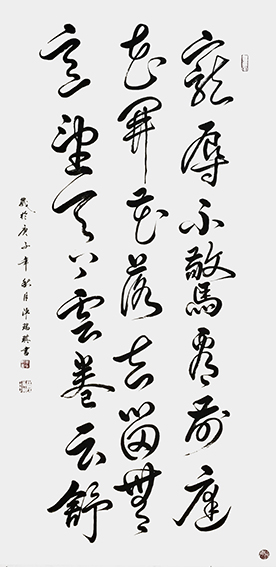 寵辱不驚看前庭
花開花落去留無
意望天雲卷云舒
歲於庚子年秋月書